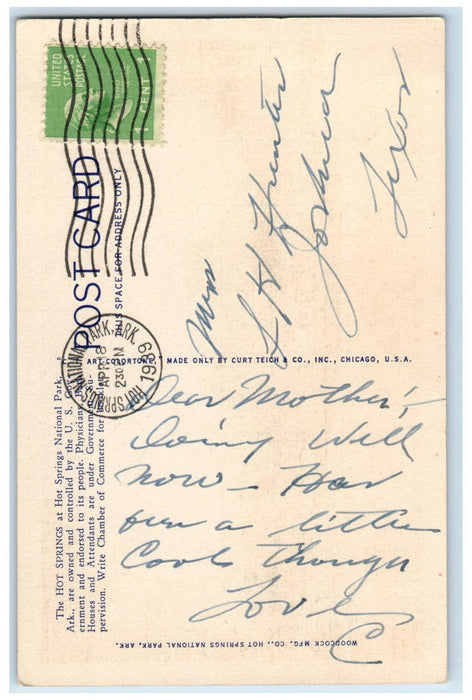 UNITED
STATES
POSTAGE
1 CENT 1
POST CARD
THIS SPACE FOR ADDRESS ONLY
Mrs
L H Hunter
Joshua
Texas
HOT SPRINGS NATIONAL PARK, ARK.
APR 8
230 PM
1939
"C. T. ART-COLORTONE," MADE ONLY BY CURT TEICH & CO., INC., CHICAGO, U.S.A.
The HOT SPRINGS at Hot Springs National Park,
Ark., are owned and controlled by the U. S. Gov-
ernment and endorsed to its people. Physicians, Bath
Houses and Attendants are under Government su-
pervision. Write Chamber of Commerce for
Dear Mother,-
Doing Well
now - Has
been a little
Cool though
Love
C
WOODCOCK MFG. CO., HOT SPRINGS NATIONAL PARK, ARK.